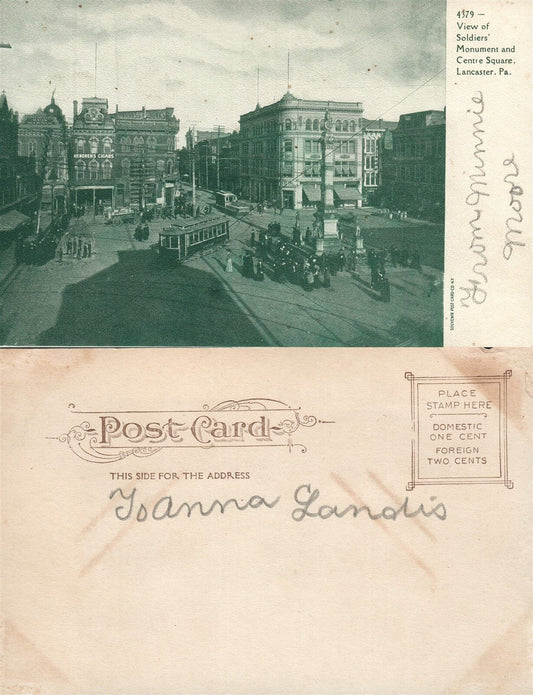 4379 —
View of
Soldiers'
Monument and
Centre Square,
Lancaster, Pa.
HENDREN'S CIGARS
From Minnie
Mowr
SOUVENIR POST CARD CO. N.Y.
Post Card
THIS SIDE FOR THE ADDRESS
PLACE
STAMP HERE
DOMESTIC
ONE CENT
FOREIGN
TWO CENTS
To Anna Landis